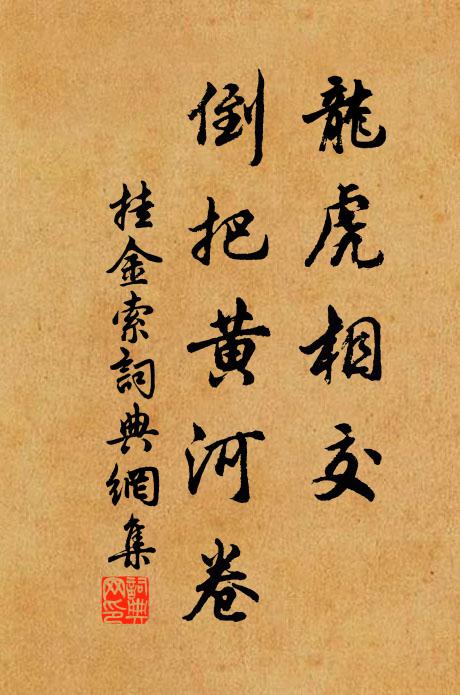 龍虎相交
倒把黄河卷
挂金索詞典網集
詞典網印